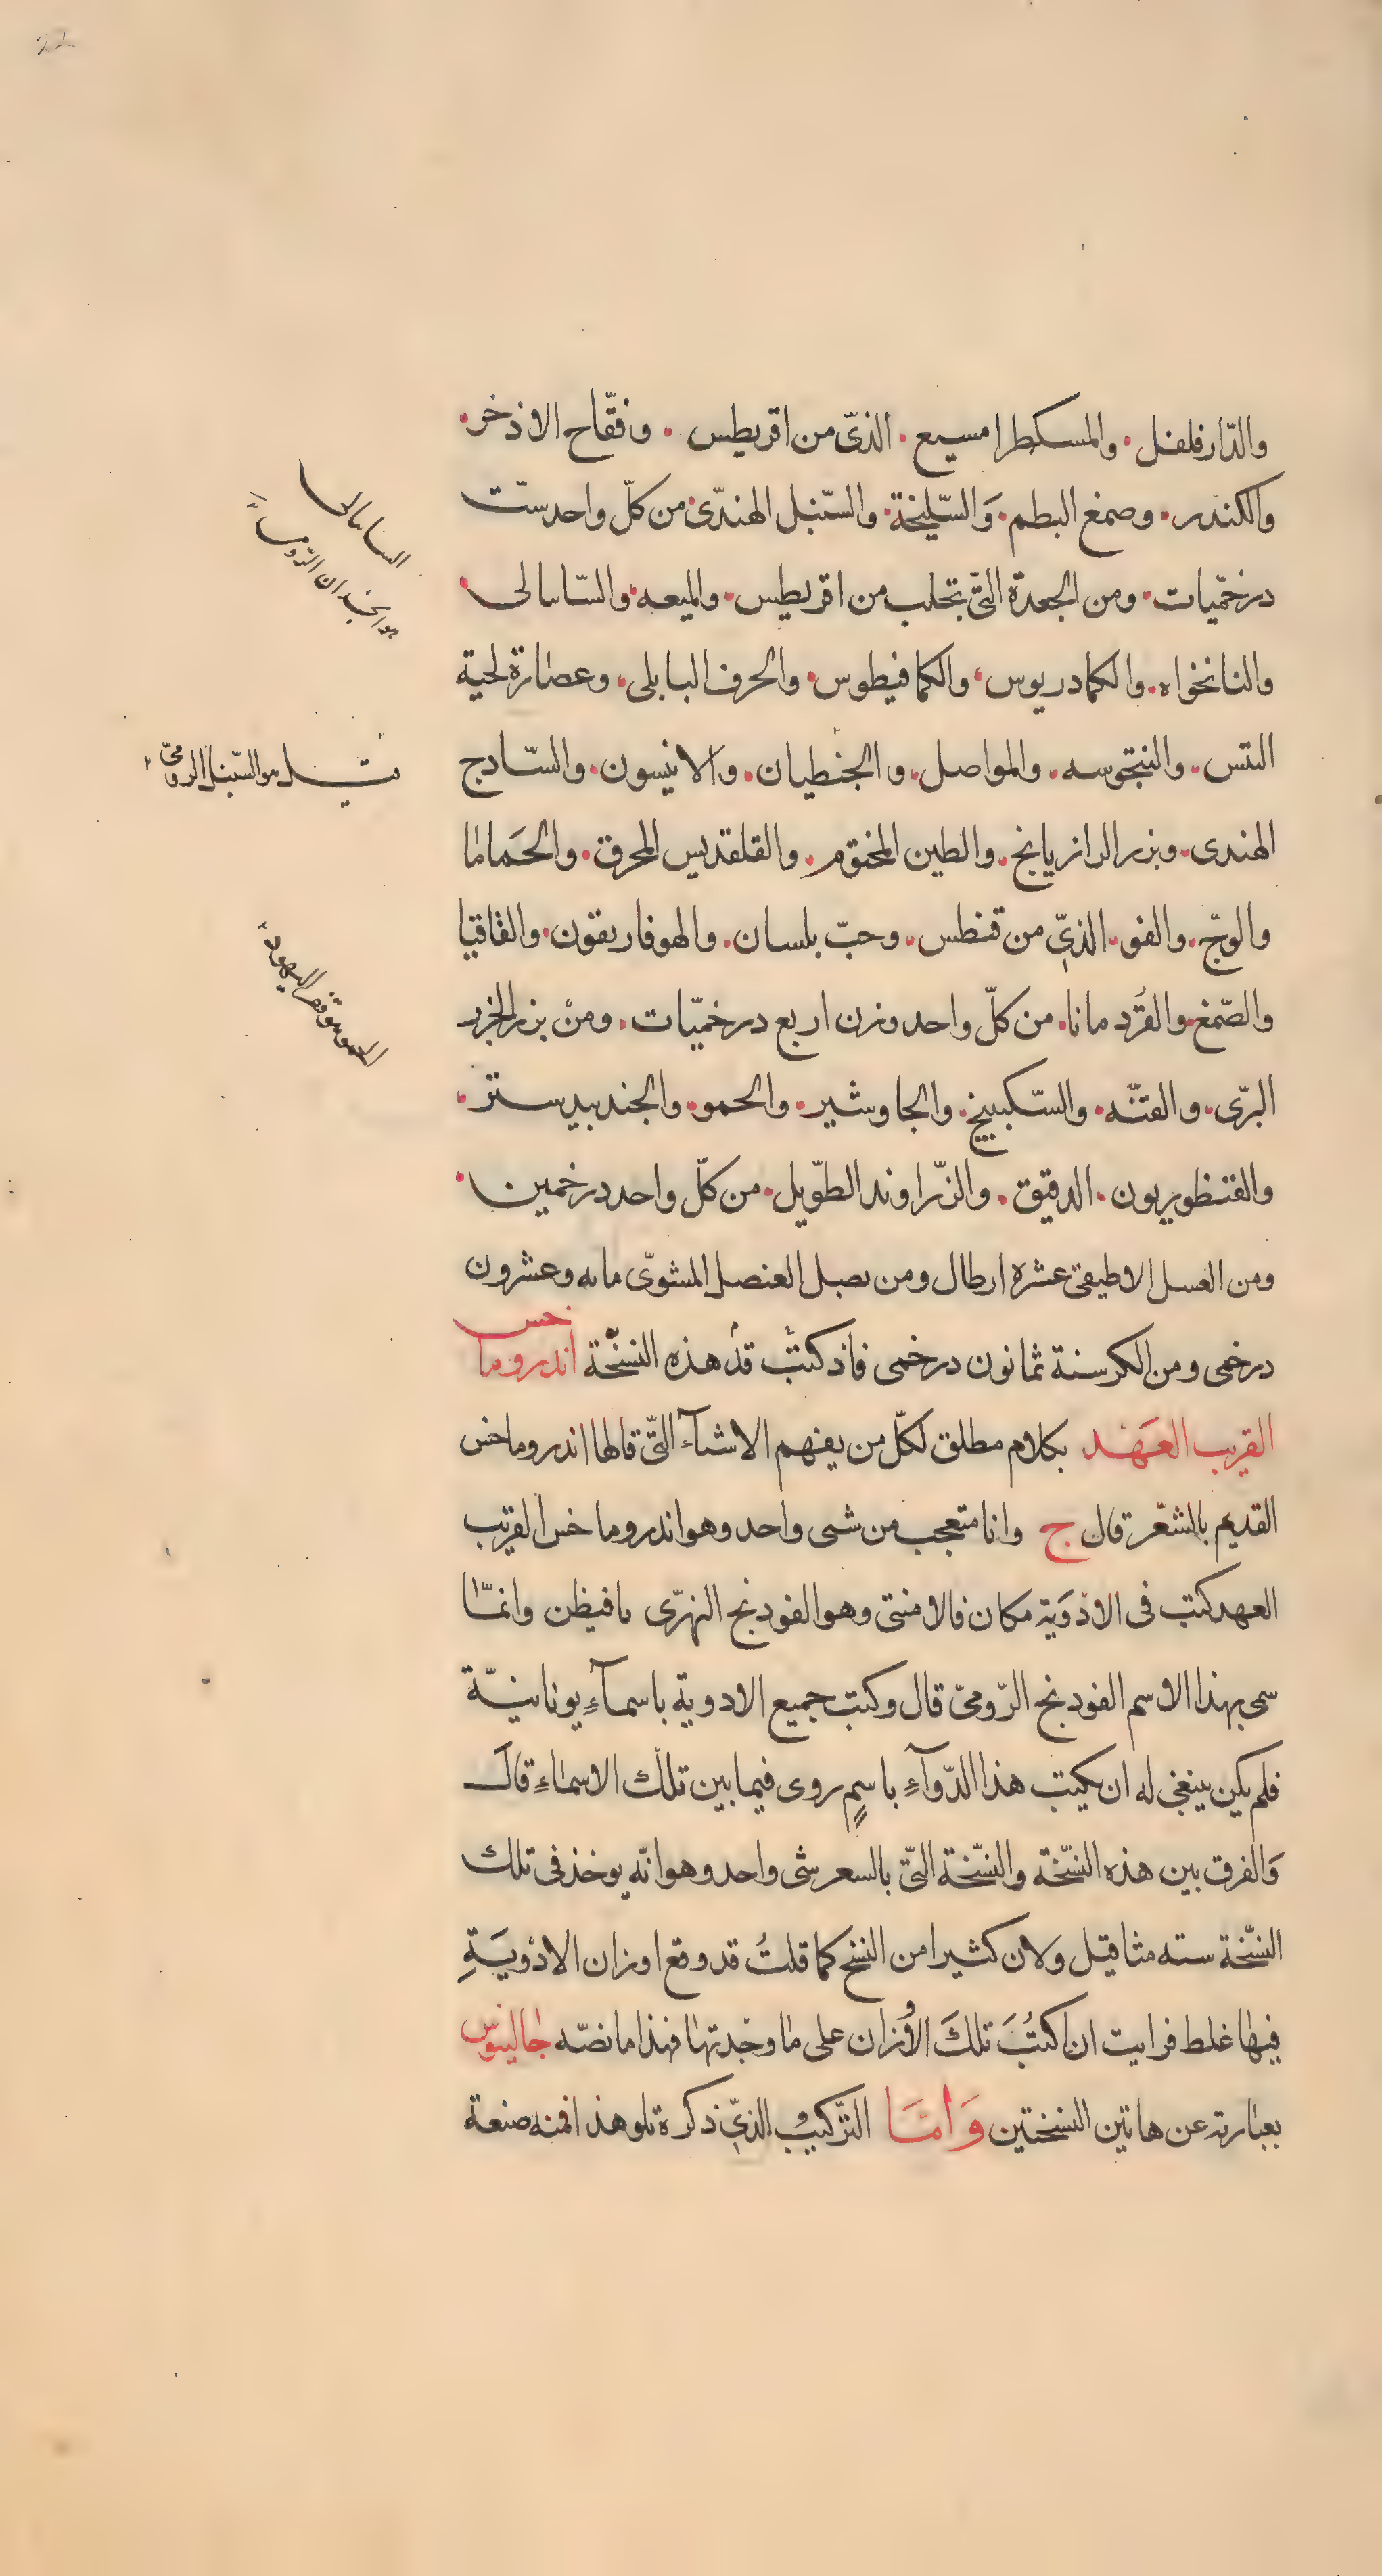 22
والدّارفلفل. والمسكطرامسيع. الذىّ من اقريطس. وفقّاح الاذخر.
والكندر. وصمغ البطم. وَالسّليخة. والسّنبل الهندىّ. من كلّ واحد ستّ
درخمّيات. ومن الجعدة التىّ تجلب من اقريطس. والميعه. والسّاسالى.
والنانخواه. والكمادريوس. والكمافيطوس. والحرف البابلى. وعصارة لحية
التيس. والنتجوسه. والمواصل. والجنطيان. والانيسون. والسّادج
الهندى. وبزر الرازيانج. والطين المختوم. والقلقديس المحرق. والحَماما
والوجّ. والفو. الذىّ من قنطس. وحبّ بلسان. والهوفاريقون. والقاقيا
والصّمغ. والقُرّدمانا. من كلّ واحد وزن اربع درخميّات. ومن بزر الجزر
البرّى. والقنّه. والسّكبينج. والجاوشير. والحمو. والجندبيدستر.
والقنطوريون. الدقيق. والزّراوند الطوّيل. من كلّ واحد درخمين.
ومن العسل الاطيقى عشره ارطال ومن بصل العنصل المشوىّ مايه وعشرون
درخمى ومن الكرسنة ثمانون درخمى فاذ كتبْ قدْ هذه النسخّة اندروماخس
القريب العَهَد بكلام مطلق لكلّ من يفهم الاشيآء التىّ قالها اندروماخس
القديم بالشعّر قال ج وانا متعجب من شى واحد وهو اندروماخس القريب
العهد كتب فى الادْوَية مكان فالامنتى وهو الفودنج النهرّى مافيظن وانمّا
سمى بهذا الاسم الفودنج الرّومىّ قال وكتب جميع الادوية باسمآءٍ يونانيّة
فلم يكن ينبغى له ان يكتب هذا الدّوآءِ باسمٍ روى فيما بين تلك الاسماءِ قال
وَالفرق بين هذه النسّخة والنسّخة التىّ بالسعر شى واحد وهو انّه يوخذ فى تلك
النسّخة سته مثاقيل ولان كثيرا من النسخ كما قلتُ قد وقع اوزان الادْويَةِ
فيها غلط فرايت ان اكتُبَ تلكَ الأوْزان على ما وجدتها فهذا ما نصّه جالينوس
بعبارته عن هاتين النسختين وَامَّا التّركيب الذىّ ذكرة تلو هذا فمنه صنعة
الساسالى
هو انجدان الرّومى
قيل هو السّنبل الرومىّ
الحمو هو قفر اليهود